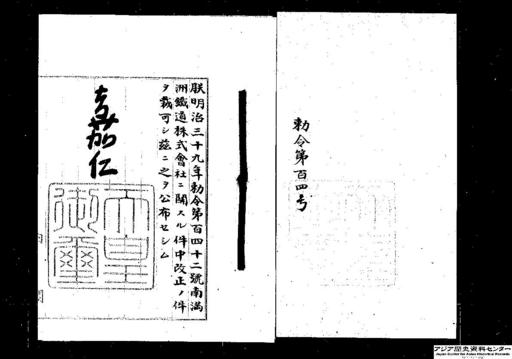 勅令第百四号
朕明治三十九年勅令第百四十二號南滿
洲鐵道株式會社ニ關スル件中改正ノ件
ヲ裁可シ茲ニ之ヲ公布セシム
嘉仁
天皇
御璽
アジア歴史資料センター
Japan Center for Asian Historical Records